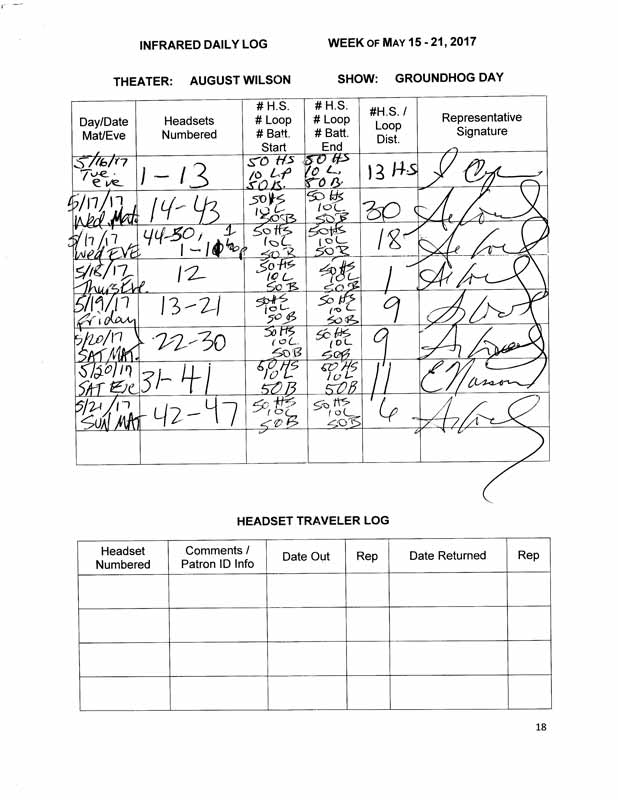 INFRARED DAILY LOG WEEK OF MAY 15 - 21, 2017
THEATER: AUGUST WILSON SHOW: GROUNDHOG DAY
Day/Date Mat/Eve Headsets Numbered # H.S. # Loop # Batt. Start # H.S. # Loop # Batt. End #H.S. / Loop Dist. Representative Signature
5/16/17 Tue. eve 1-13 50 HS 10 LP 50B. 50 HS 10 L. 50B 13 HS
5/17/17 Wed. Mat. 14-43 50HS 10L 50B 50 HS 10L 50B 30
5/17/17 Wed EVE 44-50, 1-1 50HS 10L 50B 50HS 10L 50B 18
5/18/17 Thurs Eve. 12 50HS 10L 50B 50HS 10L 50B 1
5/19/17 Friday 13-21 50HS 10L 50B 50HS 10L 50B 9
5/20/17 SAT MAT. 22-30 50HS 10L 50B 50HS 10L 50B 9
5/20/17 SAT Eve 31-41 50 HS 10L 50B 50 HS 10L 50B 11 E Masson
5/21/17 SUN MAT 42-47 50HS 10L 50B 50HS 10L 50B 6
HEADSET TRAVELER LOG
Headset Numbered Comments / Patron ID Info Date Out Rep Date Returned Rep
18